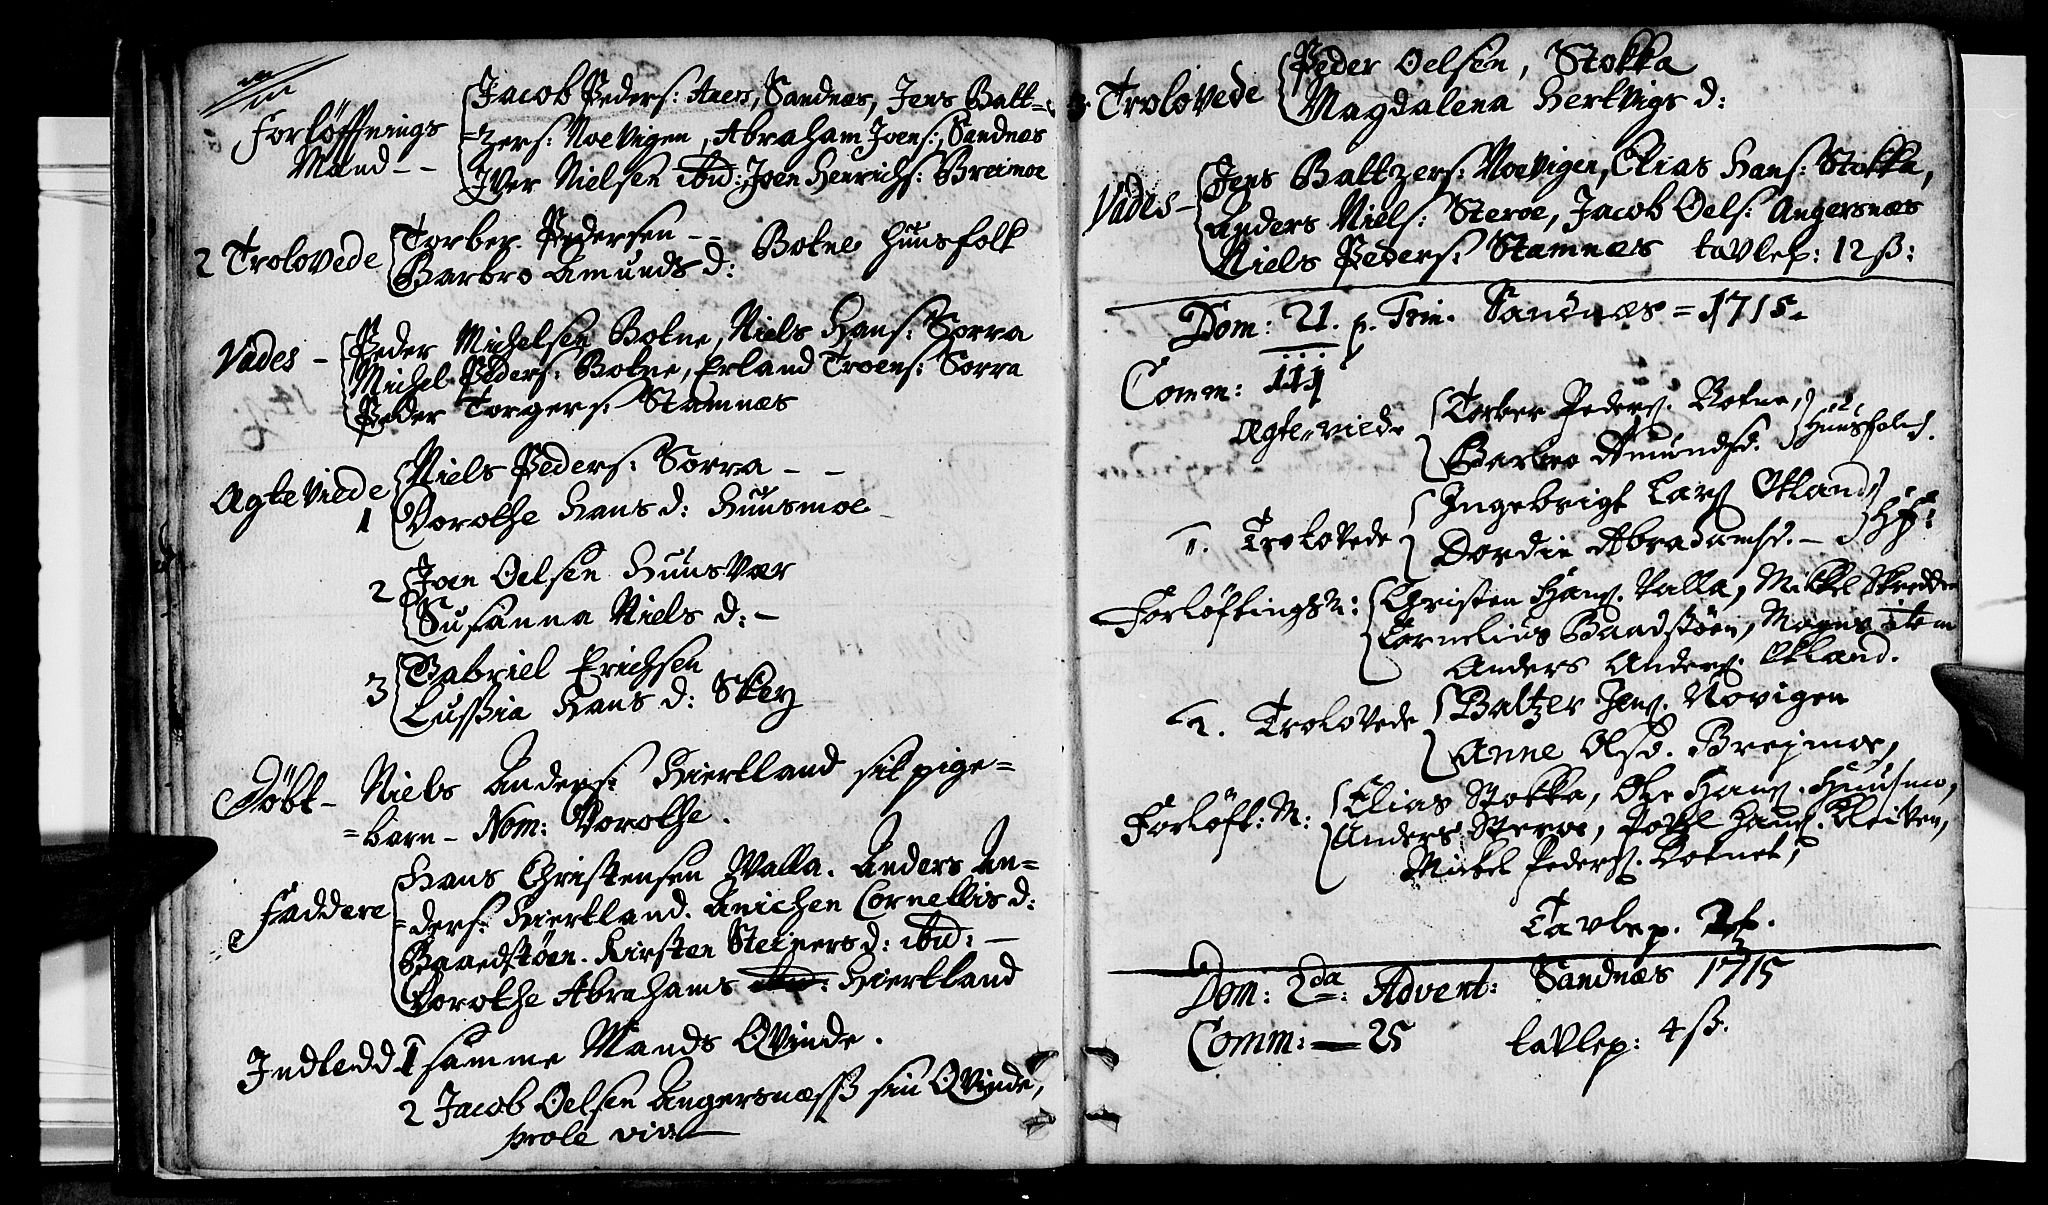 Forløffnings Mænd -- Jacob Peders: Aaen, Sandnæs, Jens Balt=
=zers: Noevigen, Abraham Joens:, Sandnæs
Iver Nielsen ibid: Joen Henrichs: Breimoe
2 Trolovede Torber Pedersen --
Barbro Amunds d: Botne Huusfolk
Vades - Peder Michelsen Botne, Niels Hans: Sorra
Michel Peders: Botne, Erland Troens: Sorra
Peder Torgers: Stamnæs
Agteviede 1 Niels Peders: Sorra - -
Dorothe Hans d: Huusmoe
2 Joen Oelsen Huusvær
Susanna Niels d: -
3 Gabriel Erichsen
Lussia Hans d: Skey
Døbt - Niels Anders: Hiertland sit pige=
=barn - Nom: Dorothe.
Faddere Hans Christensen Walla. Anders An=
=ders: Hiertland. Anichen Cornellis d:
Baaedstøen. Kirsten Steiners d: ibid: -
Dorothe Abrahams ibid: Hiertland
Indledd 1 samme Mands Qvinde.
2 Jacob Oelsen Angersnæss sin Qvinde,
prole viva
3. Trolovede Peder Oelsen, Stokka
Magdalena Hertvigs d:
Vades - Jens Baltzers: Noevigen, Elias Hans: Stokka,
Anders Niels: Steroe, Jacob Oels: Angersnæs
Niels Peders: Stamnæs tavlep: 12 ß:
Dom: 21. p. Trin. Sandnæs = 1715.
Comm: iiij
Agte viede Torber Peders. Botne,
Barbro Amundsd. Huusfolk.
1. Trolovede Ingebrigt Lars Okland,
Dordie Abrahamsd. - Hf:
Forløftings M: Christen Hans. Valla, Mikkel Skredder
Cornelius Baadstøen, Mogns item
Anders Anders. Okland.
2. Trolovede Baltzer Jens. Novigen
Anne Olsd. Brejmoe,
Forløft: M: Elias Stokka, Ole Hans. Huusmo,
Anders Steroe, Povel Hans. Kleiven,
Mickel Peders. Botnet,
Tavlep.
Dom: 2da: Advent: Sandnæs 1715
Comm: — 25 tavlep: 4 ß.